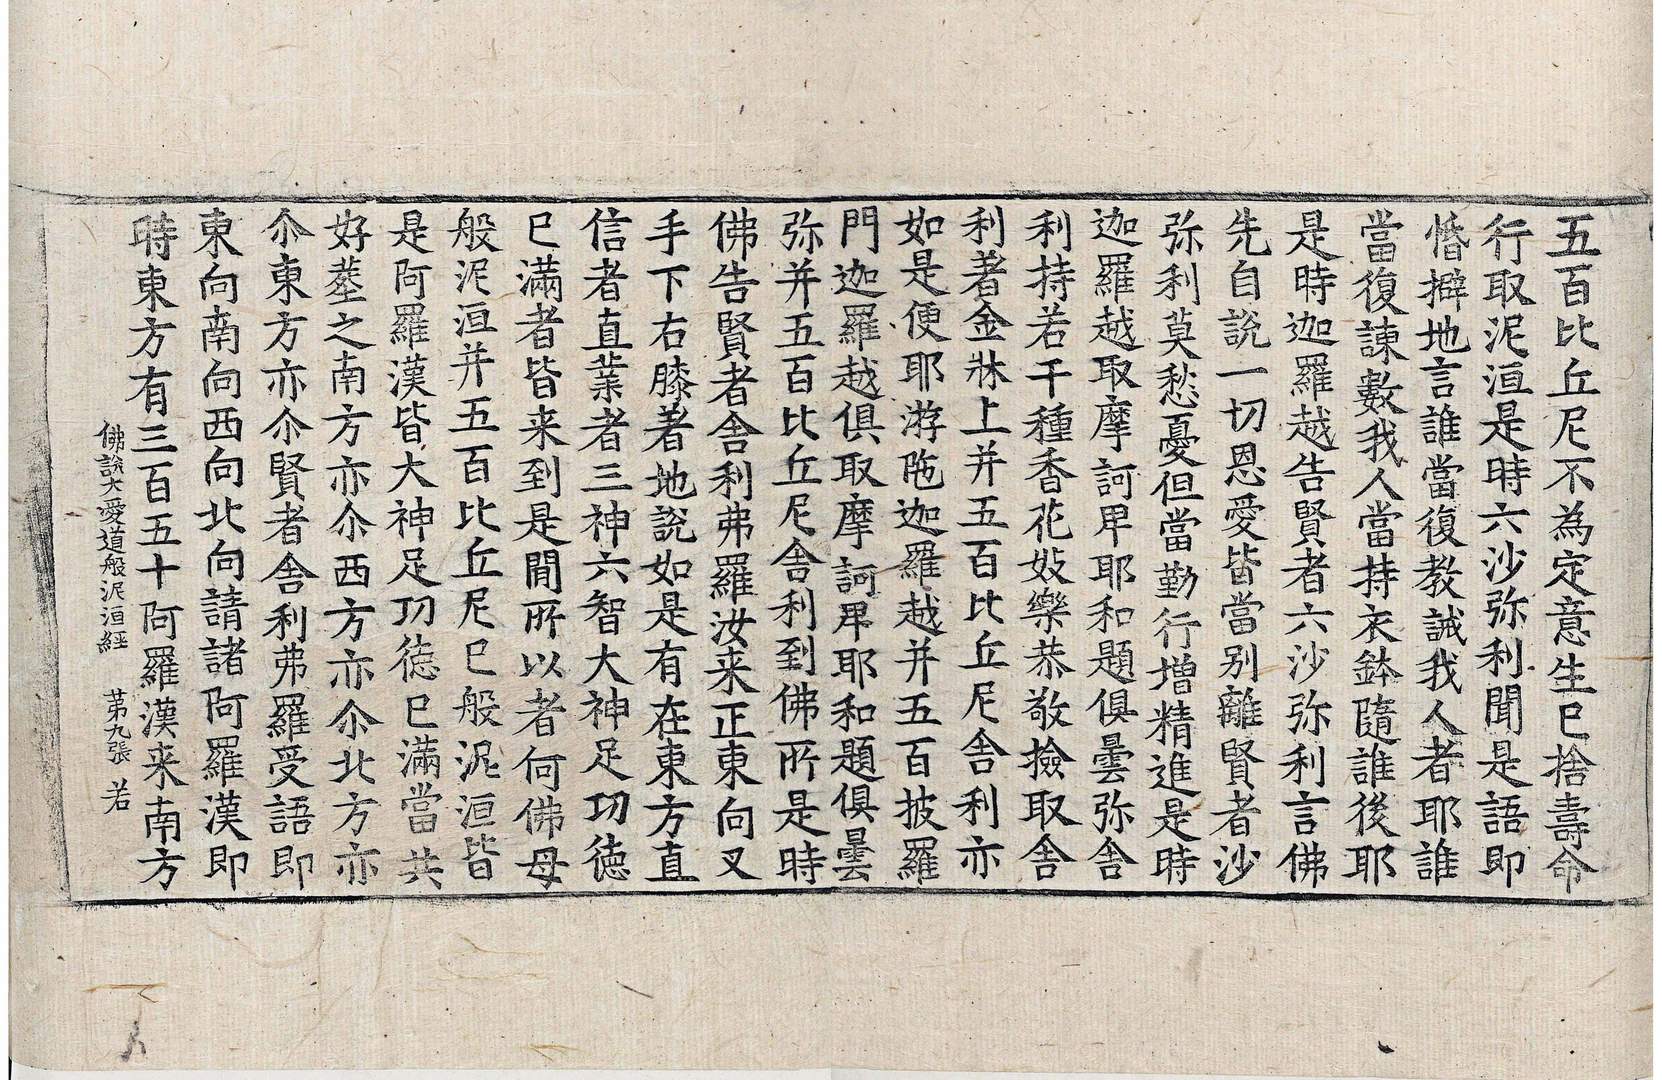 五百比丘尼不為定意生已捨壽命
行取泥洹是時六沙弥利聞是語即
惛擗地言誰當復教誡我人者耶誰
當復諫數我人當持衣鉢隨誰後耶
是時迦羅越告賢者六沙弥利言佛
先自說一切恩愛皆當别離賢者沙
弥利莫愁憂但當勤行增精進是時
迦羅越取摩訶卑耶和題俱曇弥舍
利持若干種香花妓樂恭敬撿取舍
利著金牀上并五百比丘尼舍利亦
如是便耶游陁迦羅越并五百披羅
門迦羅越俱取摩訶卑耶和題俱曇
弥并五百比丘尼舍利到佛所是時
佛告賢者舍利弗羅汝来正東向叉
手下右膝著地說如是有在東方直
信者直業者三神六智大神足功德
已滿者皆来到是間所以者何佛母
般泥洹并五百比丘尼已般泥洹皆
是阿羅漢皆大神足功德已滿當共
好塟之南方亦尒西方亦尒北方亦
尒東方亦尒賢者舍利弗羅受語即
東向南向西向北向請諸阿羅漢即
時東方有三百五十阿羅漢来南方
佛說大愛道般泥洹經 苐九張 若